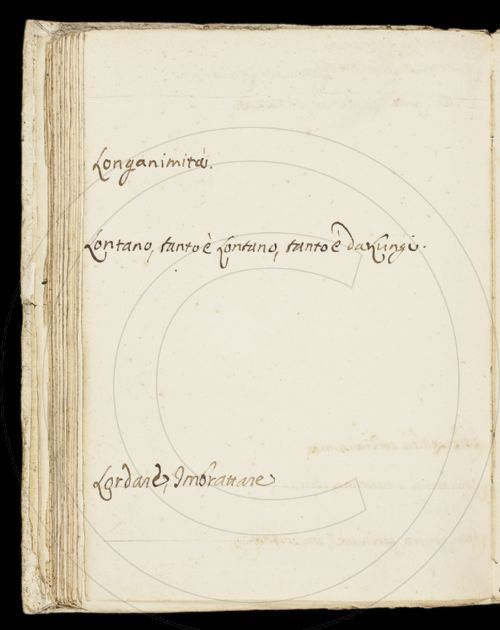 Longanimità.
Lontano, tanto è Lontano, tanto è da Lungi.
Lordare, Imbrattare